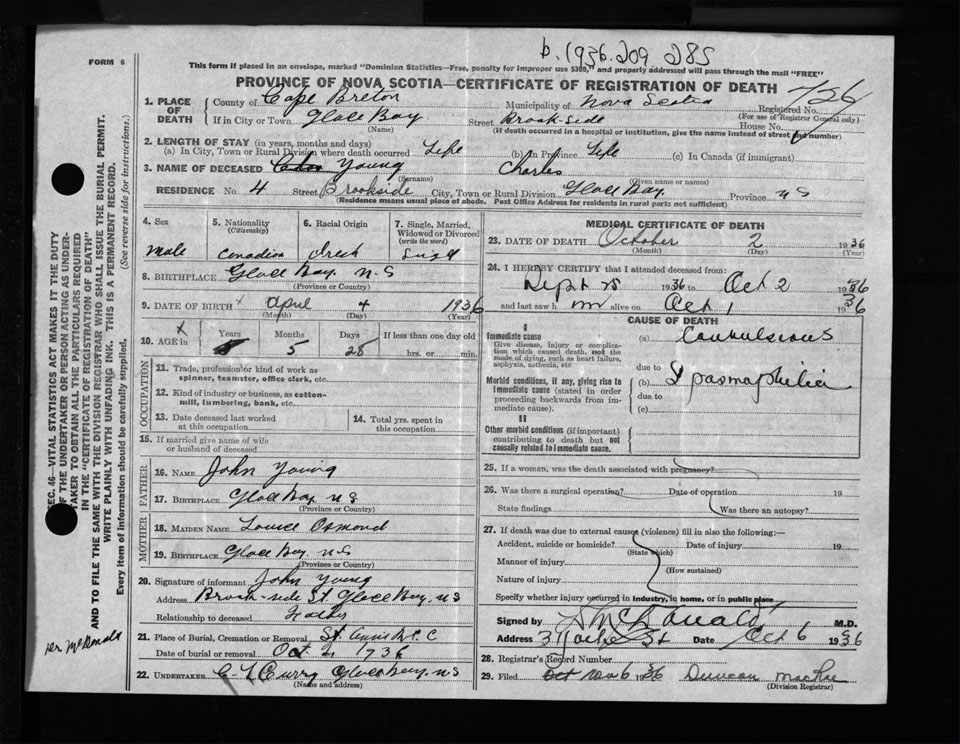 b. 1936.209 285
FORM 6
This form if placed in an envelope, marked "Dominion Statistics—Free, penalty for improper use $300," and properly addressed will pass through the mail "FREE"
PROVINCE OF NOVA SCOTIA—CERTIFICATE OF REGISTRATION OF DEATH
726
1. PLACE OF DEATH
County of Cape Breton Municipality of Nova Scotia Registered No.
(For use of Registrar General only)
If in City or Town Glace Bay Street Brook-side House No.
(Name) (If death occurred in a hospital or institution, give the name instead of street and number)
2. LENGTH OF STAY (in years, months and days)
(a) In City, Town or Rural Division where death occurred Life (b) In Province Life (c) In Canada (if immigrant)
3. NAME OF DECEASED Young Charles
(Surname) (Given name or names)
RESIDENCE No. 4 Street Brookside City, Town or Rural Division Glace Bay Province N S
(Residence means usual place of abode. Post Office Address for residents in rural parts not sufficient)
4. Sex 5. Nationality (Citizenship) 6. Racial Origin 7. Single, Married, Widowed or Divorced (write the word)
male Canadian Irish
8. BIRTHPLACE Glace Bay N.S
(Province or Country)
9. DATE OF BIRTH April 4 1936
(Month) (Day) (Year)
10. AGE in Years Months Days If less than one day old
5 28 hrs. or min.
OCCUPATION
11. Trade, profession or kind of work as spinner, teamster, office clerk, etc.
12. Kind of industry or business, as cotton-mill, lumbering, bank, etc.
13. Date deceased last worked at this occupation
14. Total yrs. spent in this occupation
15. If married give name of wife or husband of deceased
FATHER
16. NAME John Young
17. BIRTHPLACE Glace Bay N S
(Province or Country)
MOTHER
18. MAIDEN NAME Louise Osmond
19. BIRTHPLACE Glace Bay N S
(Province or Country)
20. Signature of informant John Young
Address Brook-side St. Glace Bay. N S
Relationship to deceased Father
21. Place of Burial, Cremation or Removal St. Anns R.C.C
Date of burial or removal Oct 2 1936
22. UNDERTAKER Curry Glace Bay. N S
(Name and address)
MEDICAL CERTIFICATE OF DEATH
23. DATE OF DEATH October 2 1936
(Month) (Day) (Year)
24. I HEREBY CERTIFY that I attended deceased from:
Sept 28 1936 to Oct 2 1936
and last saw h im alive on Oct 1 1936
CAUSE OF DEATH
I
Immediate cause
Give disease, injury or complication which caused death, not the mode of dying, such as heart failure, asphyxia, asthenia, etc.
(a) Convulsions
due to
Morbid conditions, if any, giving rise to immediate cause (stated in order proceeding backwards from immediate cause).
(b) Spasmophilia
due to
(c)
II
Other morbid conditions (if important) contributing to death but not causally related to immediate cause.
25. If a woman, was the death associated with pregnancy?
26. Was there a surgical operation? Date of operation 19
State findings Was there an autopsy?
27. If death was due to external causes (violence) fill in also the following:—
Accident, suicide or homicide? Date of injury 19
(State which)
Manner of injury
(How sustained)
Nature of injury
Specify whether injury occurred in industry, in home, or in public place
Signed by McDonald M.D.
Address St Date Oct 6 1936
28. Registrar's Record Number
29. Filed Nov 6 1936 Duncan
(Division Registrar)
SEC. 46—VITAL STATISTICS ACT MAKES IT THE DUTY OF THE UNDERTAKER OR PERSON ACTING AS UNDERTAKER TO OBTAIN ALL THE PARTICULARS REQUIRED IN THE "CERTIFICATE OF REGISTRATION OF DEATH"
AND TO FILE THE SAME WITH THE DIVISION REGISTRAR WHO SHALL ISSUE THE BURIAL PERMIT.
WRITE PLAINLY WITH UNFADING INK. THIS IS A PERMANENT RECORD.
Every item of information should be carefully supplied. (See reverse side for instructions.)
McDonald